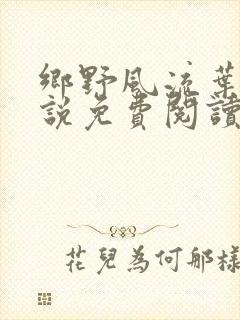 鄉野風流葉
說免費閱讀
花兒為何那樣